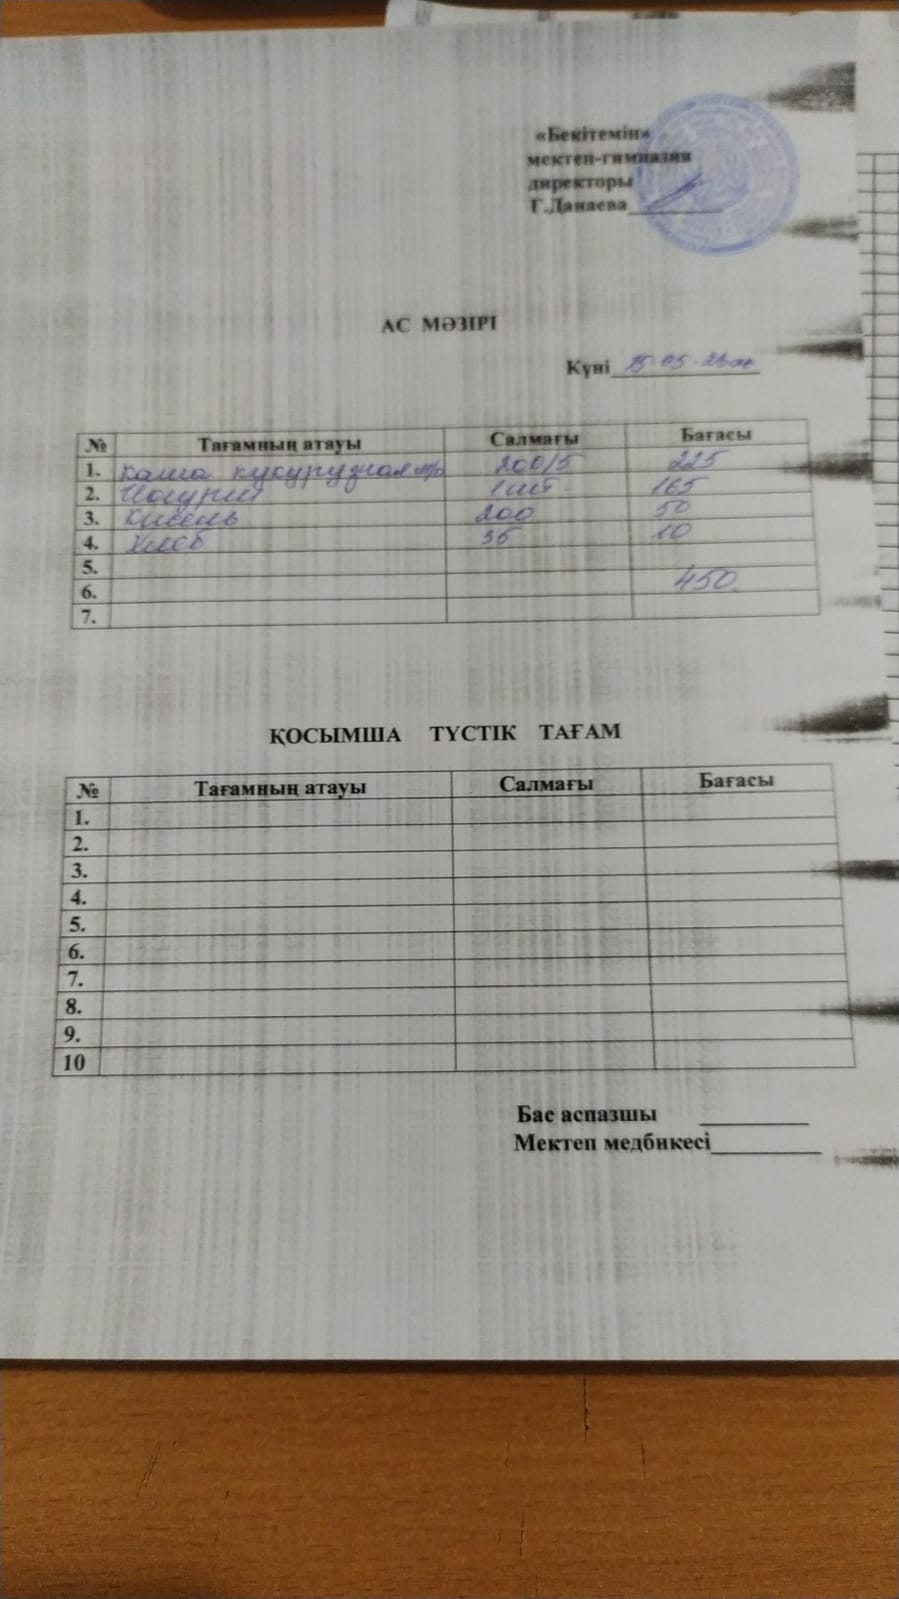 «Бекітемін»
мектеп-гимназия
директоры
Г.Данаева
АС МӘЗІРІ
Күні 15-05-23
№ Тағамның атауы Салмағы Бағасы
1. Каша кукурузная м/р 200/5 225
2. Йогурт 1 шт. 165
3. Кисель 200 50
4. Хлеб 35 10
5.
6. 450
7.
ҚОСЫМША ТҮСТІК ТАҒАМ
№ Тағамның атауы Салмағы Бағасы
1.
2.
3.
4.
5.
6.
7.
8.
9.
10
Бас аспазшы
Мектеп медбикесі